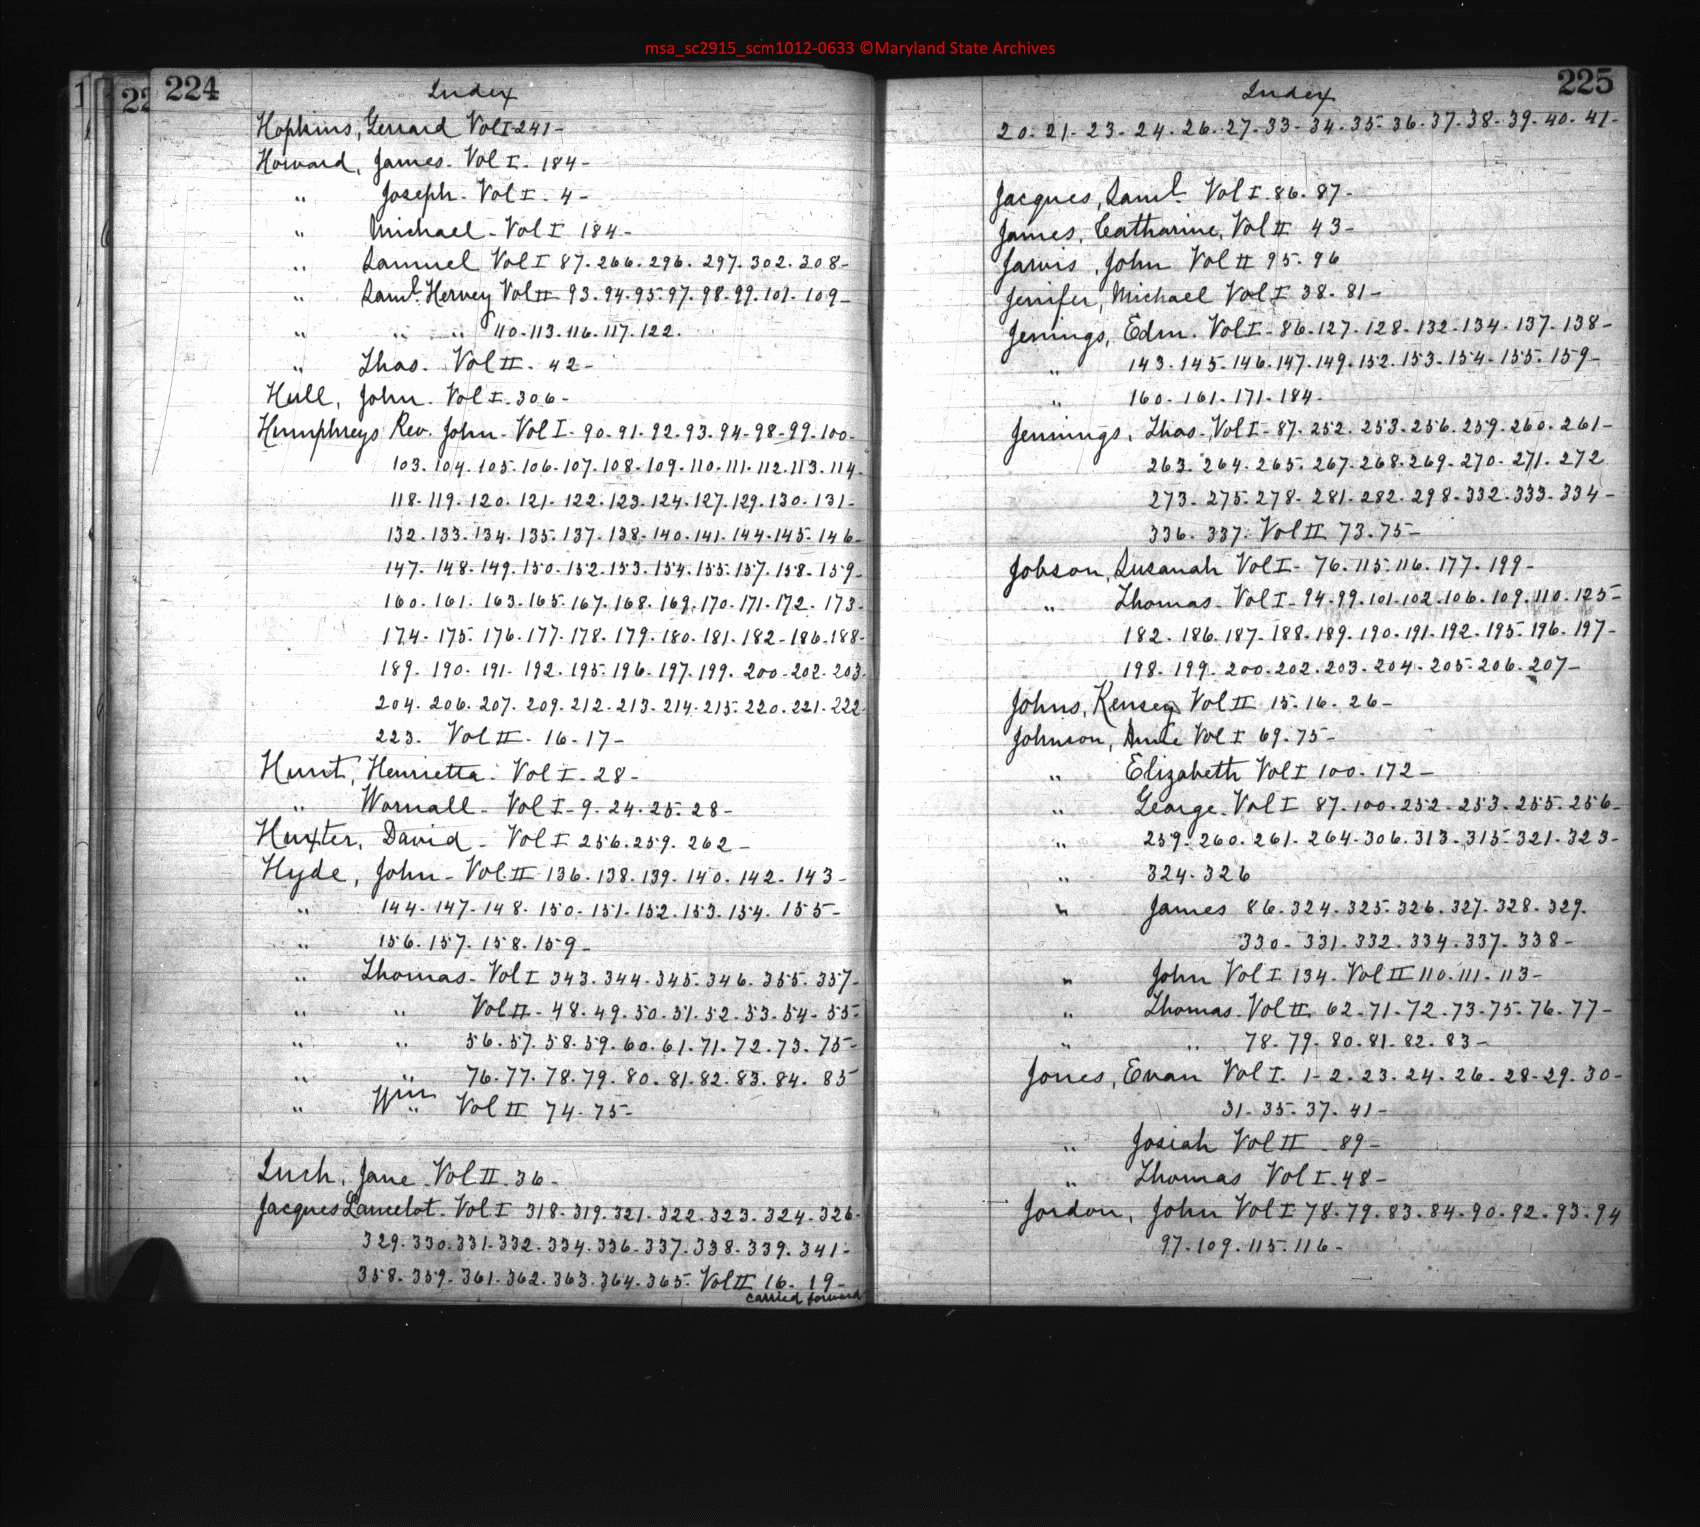 msa_sc2915_scm1012-0633 ©Maryland State Archives
224
Index
Hopkins, Gerrard Vol I-241-
Howard, James- Vol I- 184-
" Joseph- Vol I- 4-
" Michael- Vol I 184-
" Samuel Vol I 87.266.296.297.302.308-
" Saml. Hervey Vol II 93.94.95.97.98.99.101.109-
" " " 110.113.116.117.122.
" Thos. Vol II- 42-
Hull, John. Vol I-306-
Humphreys Rev. John- Vol I- 90.91.92.93.94-98-99.100-
103.104.105.106.107.108.109.110.111.112.113.114-
118.119.120.121.122.123.124.127.129.130.131-
132.133.134.135.137.138.140.141.144.145.146-
147.148.149.150.152.153.154.155.157.158.159-
160.161.163.165.167.168.169.170.171.172.173-
174.175.176.177.178.179.180.181.182-186.188-
189.190.191.192.195.196.197.199.200-202.203.
204.206.207.209.212.213.214.215.220.221.222-
223. Vol II- 16-17-
Hunt, Henrietta. Vol I-28-
" Wornall- Vol I-9.24.25.28-
Huxter, David- Vol I 256.259.262-
Hyde, John- Vol II 136.138.139.140.142.143-
" 144.147.148.150.151.152.153.154.155-
" 156.157.158.159-
" Thomas- Vol I 343.344.345.346.355.357-
" " Vol II-48.49.50.51.52.53.54-55-
" " 56.57.58.59.60.61.71.72.73.75-
" " 76.77.78.79.80.81.82.83.84.85
" Wm " Vol II 74.75-
Inch, Jane Vol II 36-
Jacques Lancelot. Vol I 318.319.321.322.323.324.326-
329.330.331.332.334.336.337.338.339.341-
358.359.361.362.363.364.365. Vol II 16.19-
carried forward
225
Index
20.21.23.24.26.27.33.34.35.36.37.38.39.40.41-
Jacques, Saml. Vol I.86.87-
James, Catharine, Vol II 43-
Jarvis, John Vol II 95.96
Jenifer, Michael Vol I 38.81-
Jennings, Edm. Vol I-86.127.128.132.134.137.138-
" 143.145.146.147.149.152.153.154.155.159-
" 160.161.171.184-
Jennings, Thos. Vol I-87.252.253.256.259.260.261-
263.264.265.267.268.269.270.271.272
273.275.278.281.282.298.332.333.334-
336.337. Vol II 73.75-
Jobson, Susanah Vol I- 76.115.116.177.199-
" Thomas. Vol I-94.99.101.102.106.109.110.125-
182.186.187.188.189.190.191.192.195.196.197-
198.199.200.202.203.204.205.206.207-
Johns, Kensey Vol II 15.16.26-
Johnson, Vol I 69.75-
" Elizabeth Vol I 100.172-
" George. Vol I 87.100.252.253.255.256-
" 259.260.261.264.306.313.315.321.323-
" 324.326
" James 86.324.325.326.327.328.329.
330.331.332.334.337.338-
" John Vol I 134. Vol II 110.111.113-
" Thomas. Vol II. 62.71.72.73.75.76.77-
" " 78.79.80.81.82.83-
Jones, Evan Vol I. 1-2.23.24.26.28-29.30-
31.35.37.41-
" Josiah Vol II 89-
" Thomas Vol I.48-
Jordon, John Vol I 78.79.83.84.90.92.93.94
97.109.115.116-